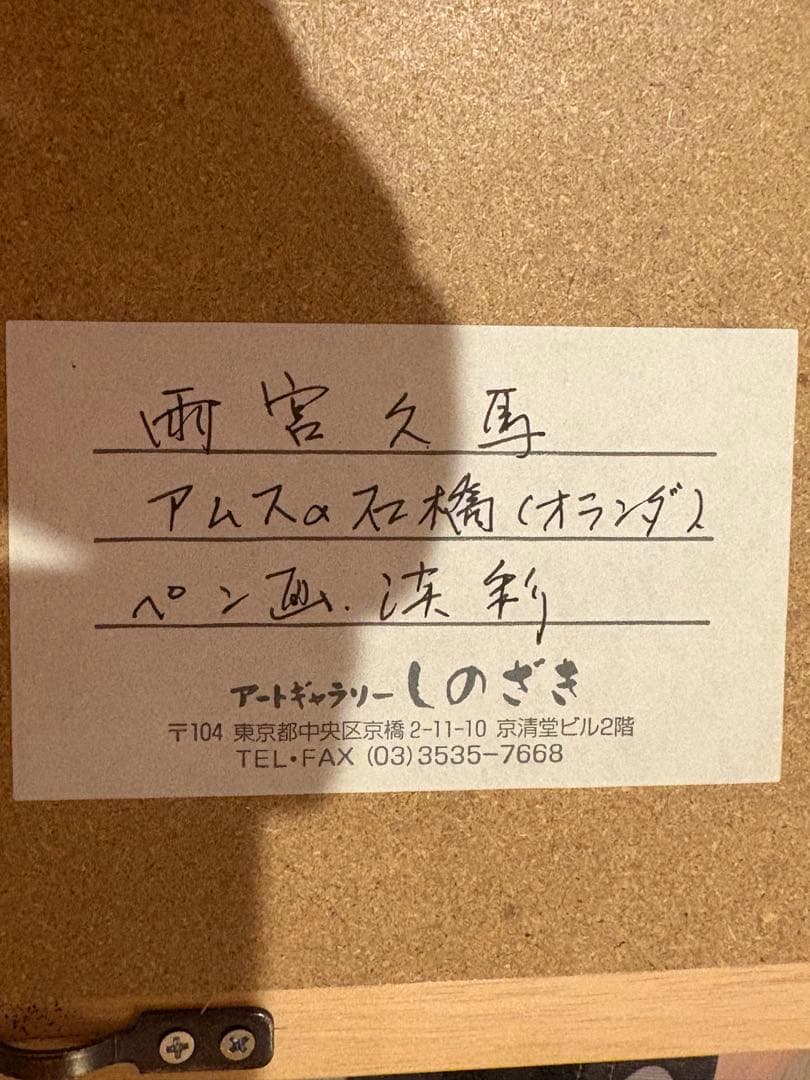 雨宮久馬
アムスの石橋(オランダ)
ペン画.淡彩
アートギャラリーしのざき
〒104 東京都中央区京橋2-11-10 京清堂ビル2階
TEL・FAX (03)3535-7668